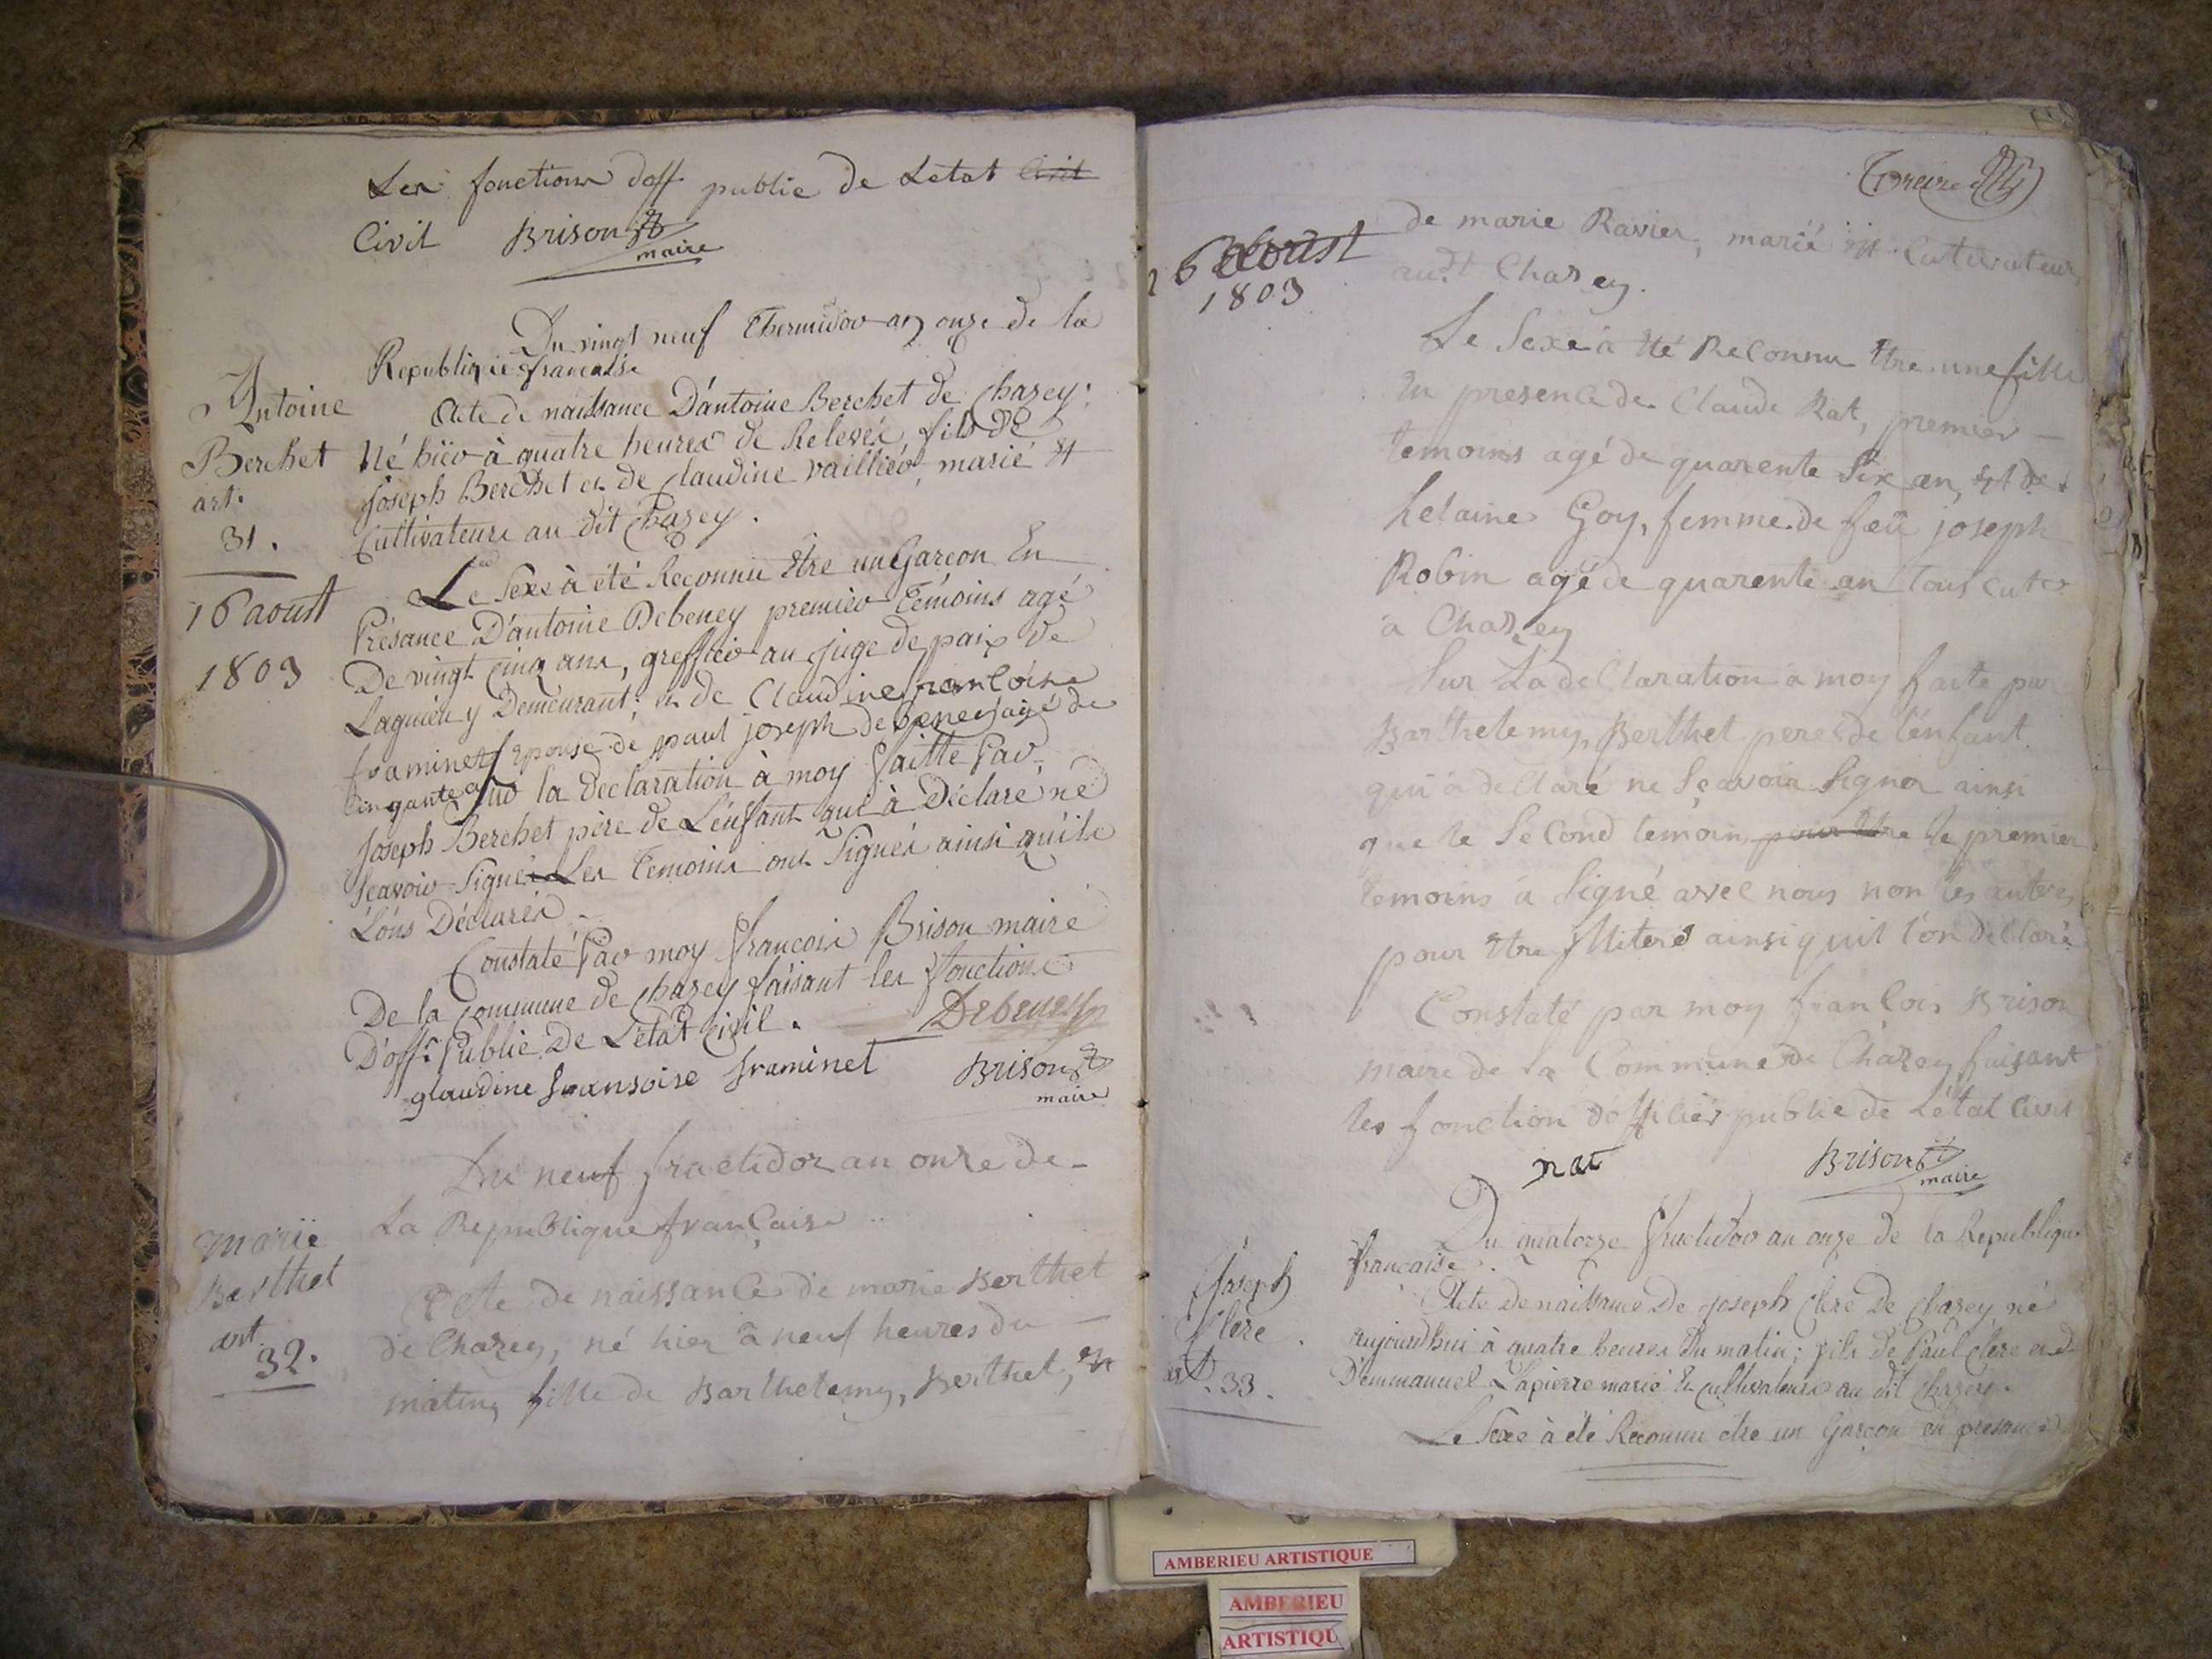 Les fonctions d'off public de Letat Civil
Civil Brison
maire
Du vingt neuf Thermidor an onze de la
Republique francaise
Antoine
Berchet
art.
31.
16 aoust
1803
Acte de naissance D'antoine Berchet de Chazey;
Né hier à quatre heures de Relevés, fils de
Joseph Berchet et de Claudine vaillier, marié et
Cultivateurs au dit Chazey.
Le Sexe à été Reconnu Etre un Garcon En
Présance D'antoine Debeney premier Témoins agé
De vingt cinq ans, greffier au juge de paix de
Lagnieu y Demeurant; et de Claudine francoise
framinet epouse de paul joseph debeney agé de
cinquante
Sur la declaration à moy faitte Par
Joseph Berchet père de L'enfant qui à Déclaré ne
Sçavoir Signer Les Temoins ont Signés ainsi qu'ils
L'ons Déclarés
Constaté Par moy francois Brison maire
De la Commune de Chazey faisant les fonctions
D'offr Public De L'état Civil.
Debeney
glaudine fransoise framinet
Brison
maire
Du neuf fructidor an onze de
La Republique française
marie
Berthet
art.
32.
Acte de naissance de marie Berthet
de Chazey, né hier à neuf heures du
matin, fille de Barthelemy, Berthet, et
26 aoust
1803
de marie Ravier, marié et Cultivateur
audt Chazey.
Le Sexe à été Reconnu Etre une fille
En presence de Claude Rat, premier
temoins agé de quarente Six an, et de
helaine Goy, femme de feû joseph
Robin agé de quarente an tous cultrs
a Chazey
Sur La declaration à moy faite par
Barthelemy, Berthet peres de l'enfant
qui à declaré ne Sçavoir Signer ainsi
que le Second temoin, pour etre le premier
temoins à Signé avec nous non les autres
pour etre illiteré ainsi quil l'on déclaré
Constaté par moy francois Brison
maire de la Commune de Chazey faisant
les fonction d'officier public de L'état Civil
rat
Brison
maire
Du quatorze fructidor an onze de la Republique
francaise
Joseph
Clere
art. 33.
Acte de naissance De Joseph Clere De Chazey né
aujourdhui à quatre heures du matin; fils de Paul Clere et d
D'emmanuel Lapierre marié Et cultivateurs au dit Chazey.
Le Sexe à été Reconnu etre un Garcon en presance
AMBERIEU ARTISTIQUE
AMBERIEU
ARTISTIQU